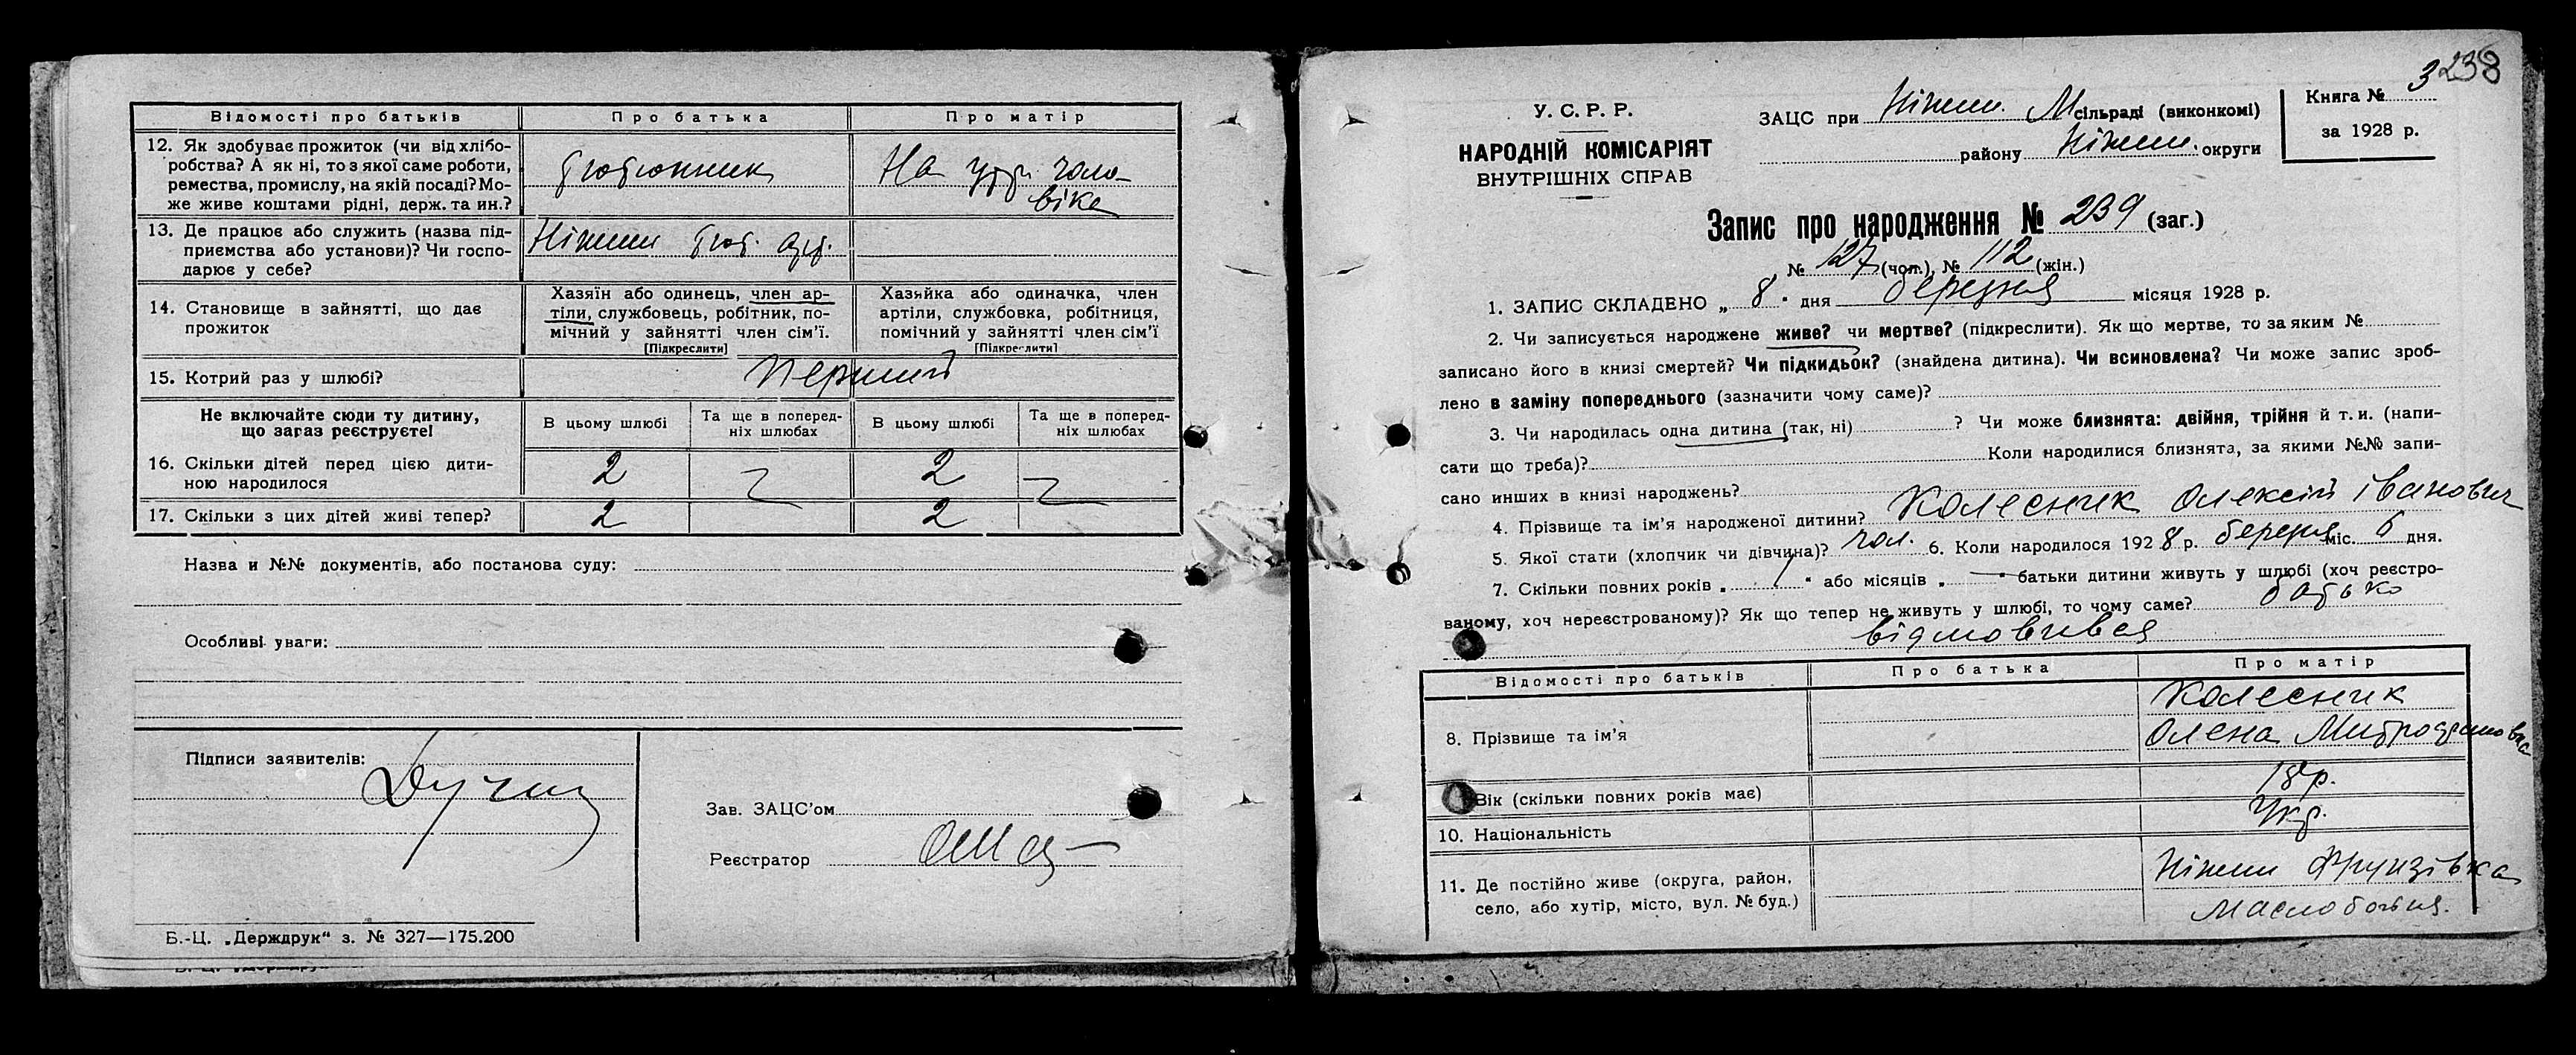 Відомості про батьків | Про батька | Про матір
12. Як здобуває прожиток (чи від хлібо-
робства? А як ні, то з якої саме роботи,
ремества, промислу, на якій посаді? Мо-
же живе коштами рідні, держ. та ин.?
На утр. чоло-
віка
13. Де працює або служить (назва під-
приємства або установи)? Чи госпо-
дарює у себе?
Ніжин
14. Становище в зайнятті, що дає
прожиток
Хазяїн або одинець, член ар-
тіли, службовець, робітник, по-
мічний у зайнятті член сім'ї.
[Підкреслити]
Хазяйка або одиначка, член
артіли, службовка, робітниця,
помічний у зайнятті член сім'ї
[Підкреслити]
15. Котрий раз у шлюбі? Перший
Не включайте сюди ту дитину,
що зараз реєструєте!
В цьому шлюбі | Та ще в поперед-
ніх шлюбах | В цьому шлюбі | Та ще в поперед-
ніх шлюбах
16. Скільки дітей перед цією дити-
ною народилося 2 2
17. Скільки з цих дітей живі тепер? 2 2
Назва и №№ документів, або постанова суду:
Особливі уваги:
Підписи заявителів:
Зав. ЗАЦС'ом
Реєстратор
Б.-Ц. „Держдрук“ з. № 327—175.200
3 238
У. С. Р. Р.
НАРОДНІЙ КОМІСАРІЯТ
ВНУТРІШНІХ СПРАВ
ЗАЦС при Ніжин. М сільраді (виконкомі)
району Ніжин. округи
Книга №
за 1928 р.
Запис про народження № 239 (заг.)
№ 127 (чол.), № 112 (жін.)
1. ЗАПИС СКЛАДЕНО „ 8 “ дня березня місяця 1928 р.
2. Чи записується народжене живе? чи мертве? (підкреслити). Як що мертве, то за яким №
записано його в книзі смертей? Чи підкидьок? (знайдена дитина). Чи всиновлена? Чи може запис зроб-
лено в заміну попереднього (зазначити чому саме)?
3. Чи народилась одна дитина (так, ні) ? Чи може близнята: двійня, трійня й т. и. (напи-
сати що треба)? Коли народилися близнята, за якими №№ запи-
сано инших в книзі народжень?
4. Прізвище та ім'я народженої дитини? Колесник Олексій Іванович
5. Якої стати (хлопчик чи дівчина)? чол. 6. Коли народилося 1928 р. березня міс. 6 дня.
7. Скільки повних років „ “ або місяців „ “ батьки дитини живуть у шлюбі (хоч реєстро-
ваному, хоч нереєстрованому)? Як що тепер не живуть у шлюбі, то чому саме? батько
відмовився
Відомості про батьків | Про батька | Про матір
8. Прізвище та ім'я
Колесник
Олена Митрофановна
Вік (скільки повних років має) 18 р.
10. Національність Укр.
11. Де постійно живе (округа, район,
село, або хутір, місто, вул. № буд.)
Ніжин Фрунзівка
Маслобойня.